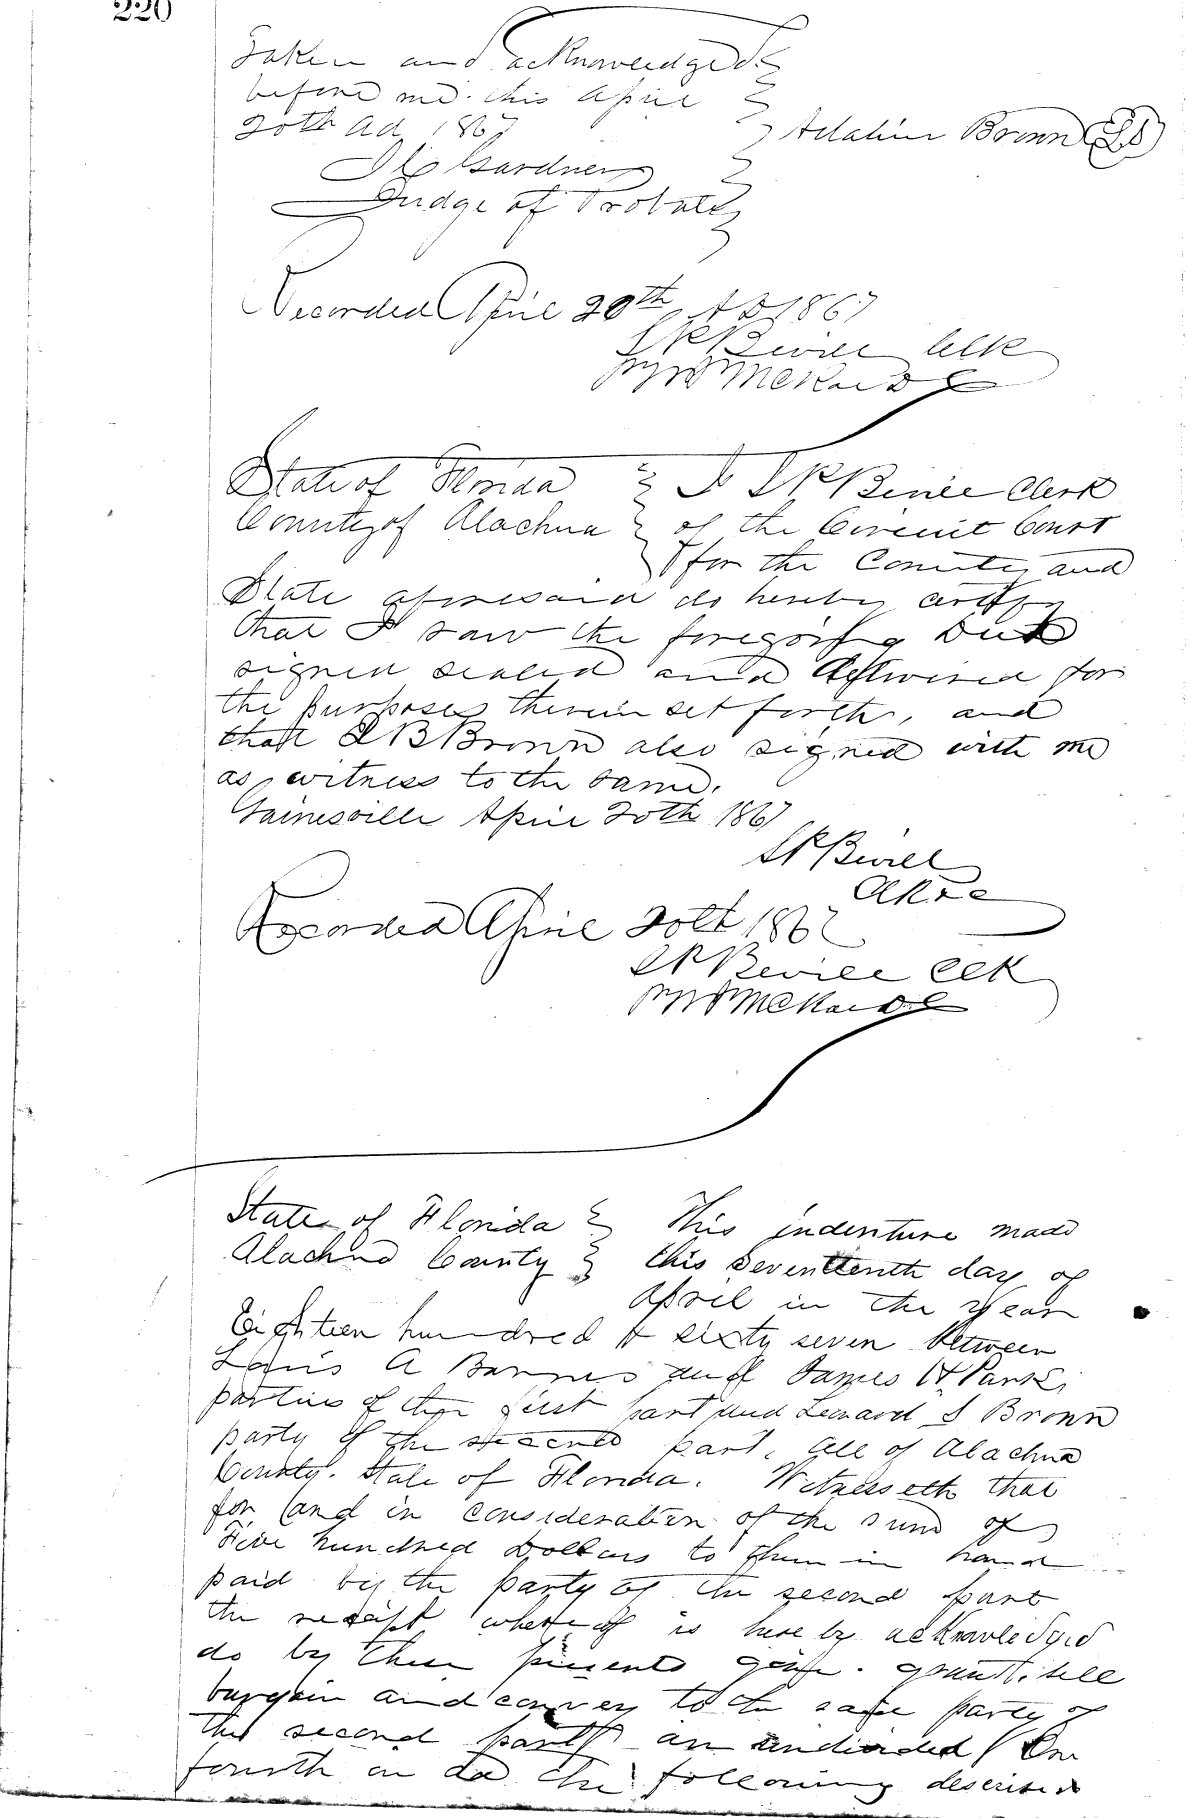 220
Taken and acknowledged
before me this April
20th AD 1867
Adaline Brown LS
Gardner
Judge of Probate
Recorded April 20th AD 1867
S R Bevill Clk
State of Florida I S R Bevill Clerk
County of Alachua of the Circuit Court
for the County and
State aforesaid do hereby certify
that I saw the foregoing Deed
signed sealed and delivered for
the purposes therein set forth, and
that B Brown also signed with me
as witness to the same.
Gainesville April 20th 1867
S R Bevill
Recorded April 20th 1867
S R Bevill Clk
State of Florida This indenture made
Alachua County this seventeenth day of
April in the year
Eighteen hundred & sixty seven between
Louis A Barnes and James H Park
parties of the first part and Leonard S Brown
party of the second part, all of Alachua
County. State of Florida. Witnesseth that
for and in consideration of the sum of
Five hundred Dollars to them in hand
paid by the party of the second part
the receipt whereof is here by acknowledged
do by these presents give. grant. sell
bargain and convey to the said party of
the second part an undivided One
fourth in the following described